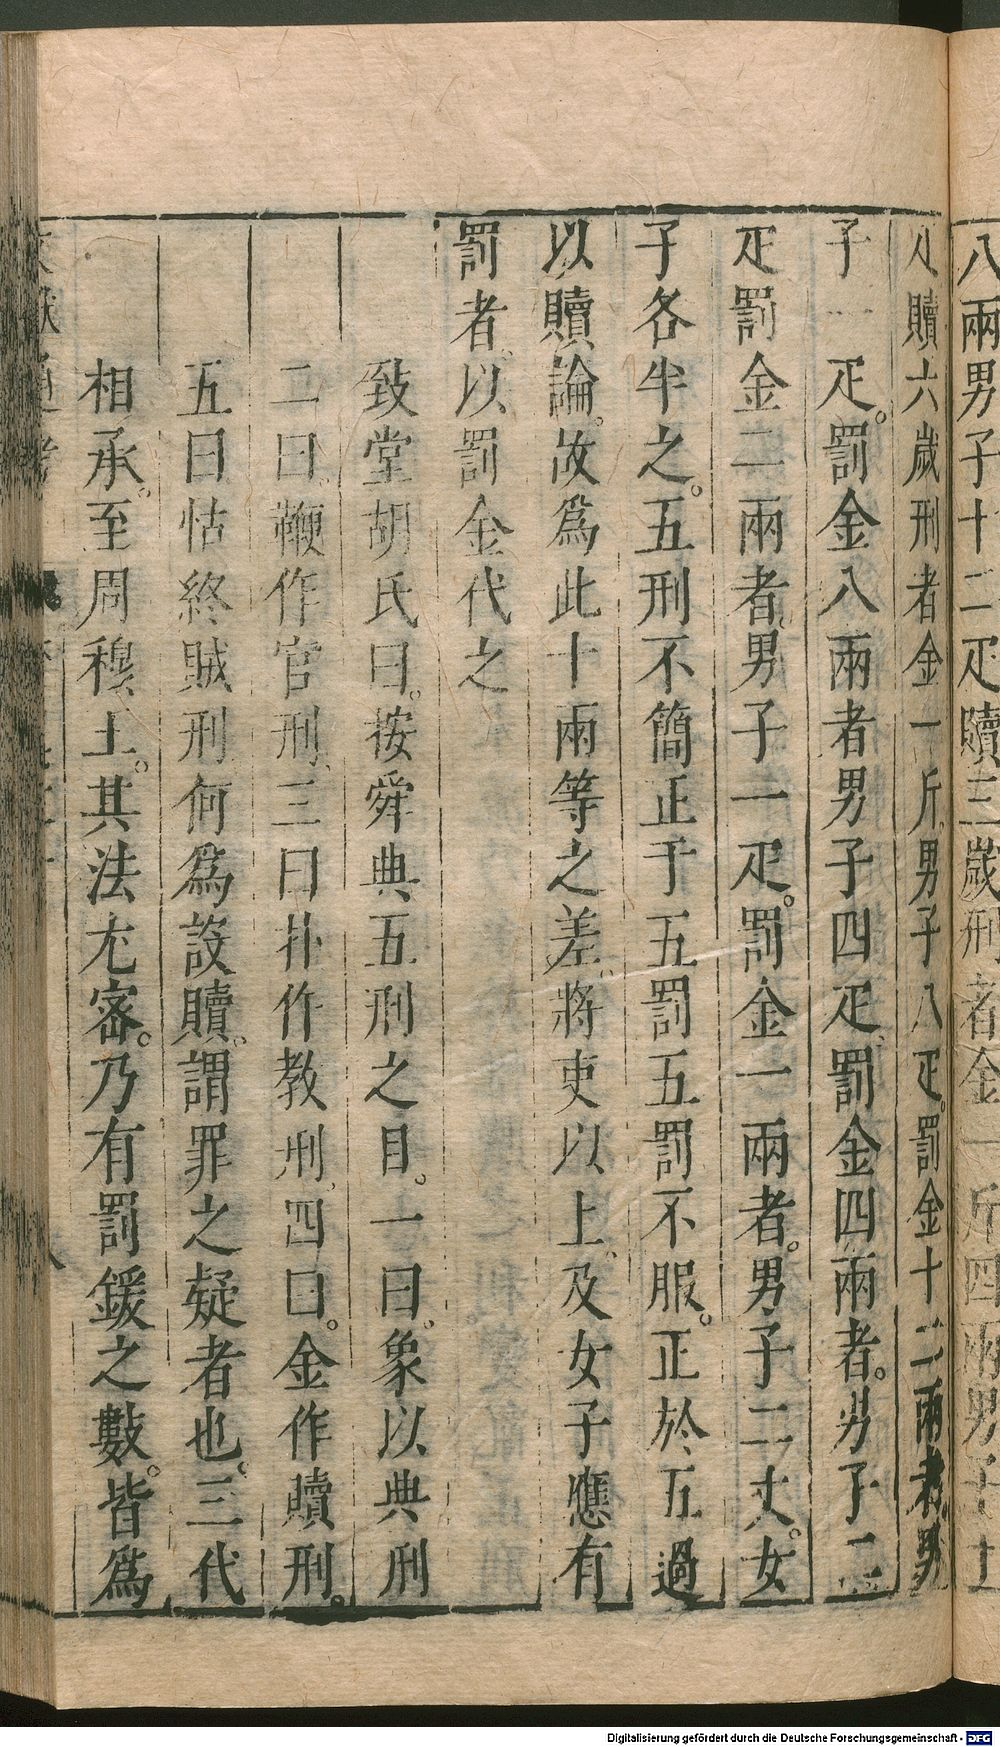 八兩男子十二疋贖三歲刑者金一斤四兩男子十
疋贖六歲刑者金一斤男子八疋。罰金十二兩者。男
子一疋。罰金八兩者男子四疋罰金四兩者。男子二
疋罰金二兩者。男子一疋。罰金一兩者。男子二丈。女
子各半之。五刑不簡正于五罰五罰不服。正於五過
以贖論。故爲此十兩等之差。將吏以上及女子應有
罰者。以罰金代之
致堂胡氏曰。按舜典五刑之目。一曰。象以典刑
二曰。鞭作官刑三曰扑作教刑四曰。金作贖刑。
五曰怙終賊刑何爲設贖。謂罪之疑者也。三代
相承。至周穆王。其法尤密。乃有罰鍰之數。皆爲
文獻通考
Digitalisierung gefördert durch die Deutsche Forschungsgemeinschaft - DFG